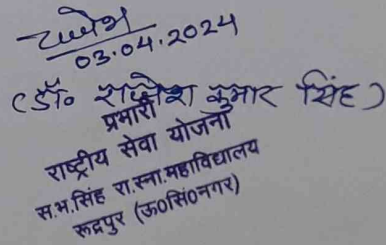 राजेश
03.04.2024
(डॉ० राजेश कुमार सिंह)
प्रभारी
राष्ट्रीय सेवा योजना
स.भ.सिंह रा.स्ना.महाविद्यालय
रूद्रपुर (ऊ०सिं०नगर)